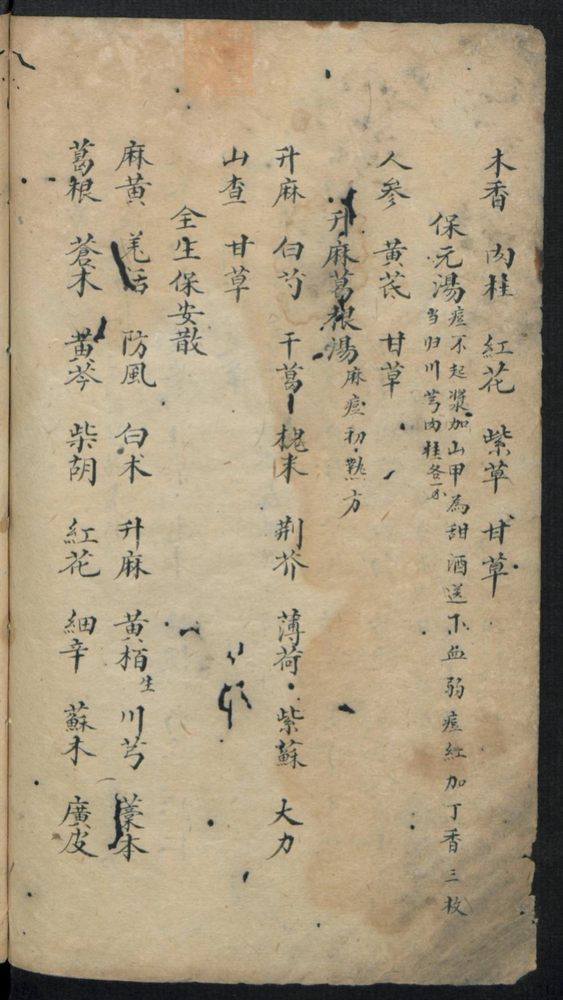 木香 肉桂 紅花 紫草 甘草
保元湯 痘不起漿加山甲為甜酒送下血弱痘紅加丁香三枚
当归川芎肉桂各一
人參 黃芪 甘草
升麻葛根湯 麻痘初熱方
升麻 白芍 干葛 荊芥 薄荷 紫蘇 大力
山查 甘草
全生保安散
麻黄 羌活 防風 白术 升麻 黄栢生 川芎 藁本
葛根 蒼术 黄芩 柴胡 紅花 細辛 蘇木 廣皮